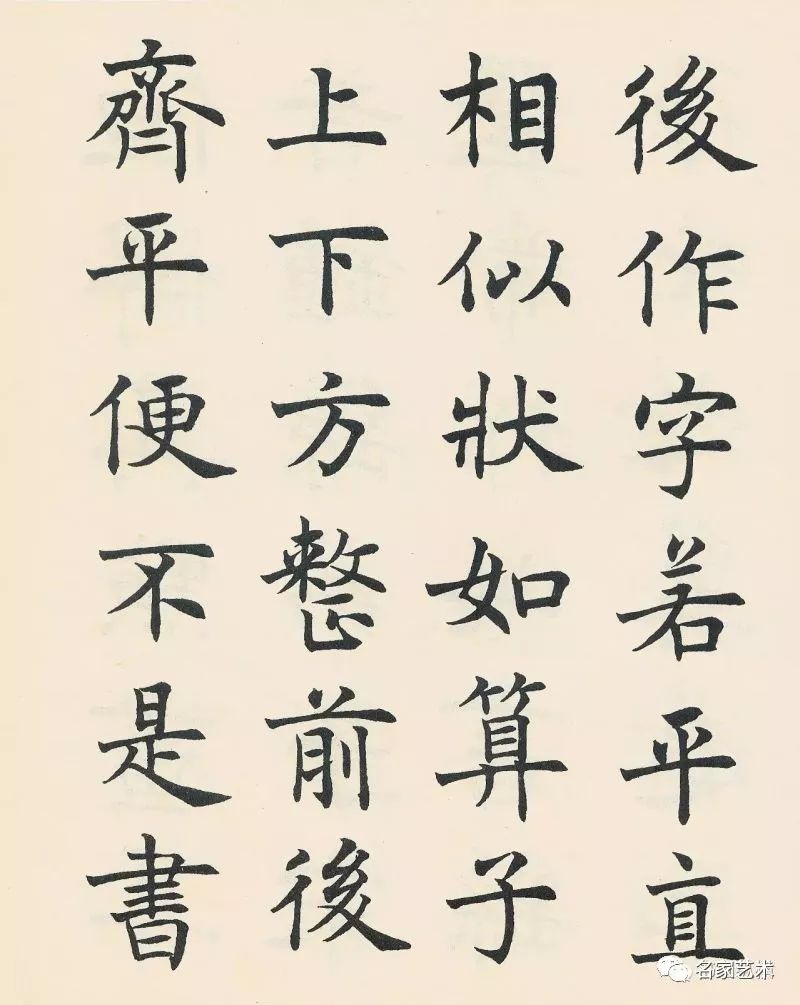 後作字若平直
相似狀如算子
上下方整前後
齊平便不是書
名家艺术